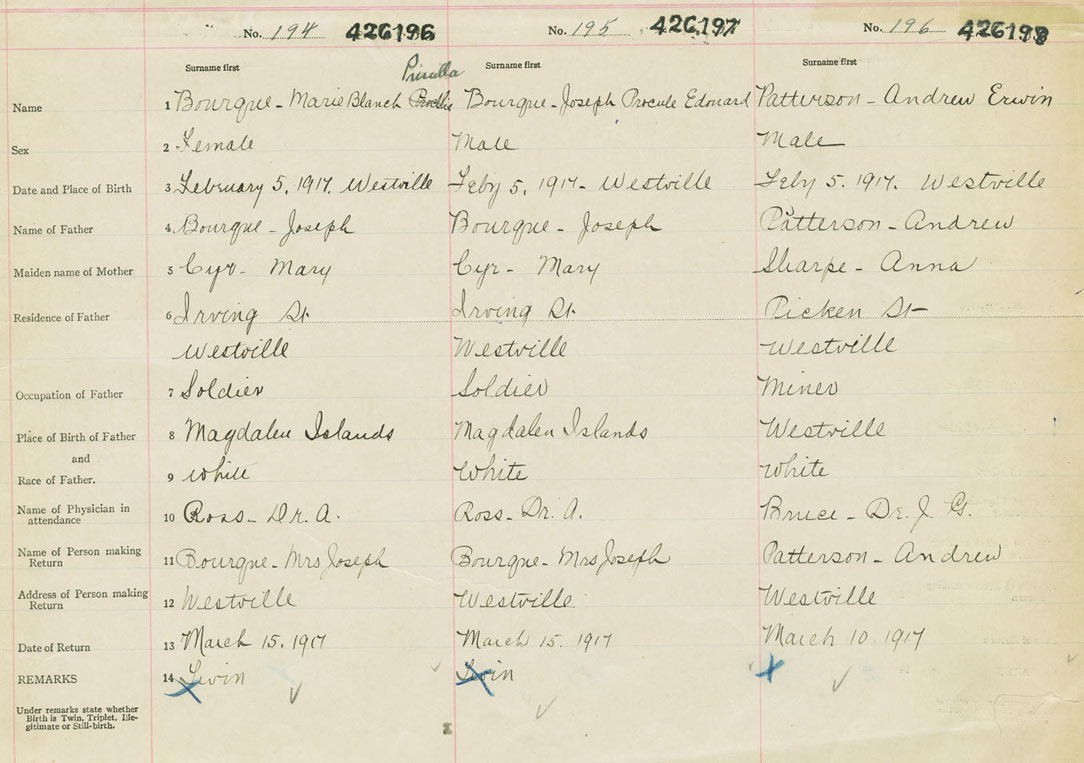 No. 194 426196 No. 195 426197 No. 196 426198
Surname first Priscilla Surname first Surname first
Name 1 Bourque - Marie Blanch Bourque - Joseph Procule Edouard Patterson - Andrew Erwin
Sex 2 Female Male Male
Date and Place of Birth 3 February 5, 1917. Westville Feby 5. 1917 - Westville Feby 5. 1917. Westville
Name of Father 4 Bourque - Joseph Bourque - Joseph Patterson - Andrew
Maiden name of Mother 5 Cyr - Mary Cyr - Mary Sharpe - Anna
Residence of Father 6 Irving St. Irving St. Picken St
Westville Westville Westville
Occupation of Father 7 Soldier Soldier Miner
Place of Birth of Father 8 Magdalen Islands Magdalen Islands Westville
and
Race of Father. 9 White White White
Name of Physician in
attendance 10 Ross - Dr. A. Ross - Dr. A. Bruce - Dr. J. G.
Name of Person making
Return 11 Bourque - Mrs Joseph Bourque - Mrs Joseph Patterson - Andrew
Address of Person making
Return 12 Westville Westville Westville
Date of Return 13 March 15. 1917 March 15. 1917 March 10. 1917
REMARKS 14 Twin Twin
Under remarks state whether
Birth is Twin, Triplet, Ille-
gitimate or Still-birth.